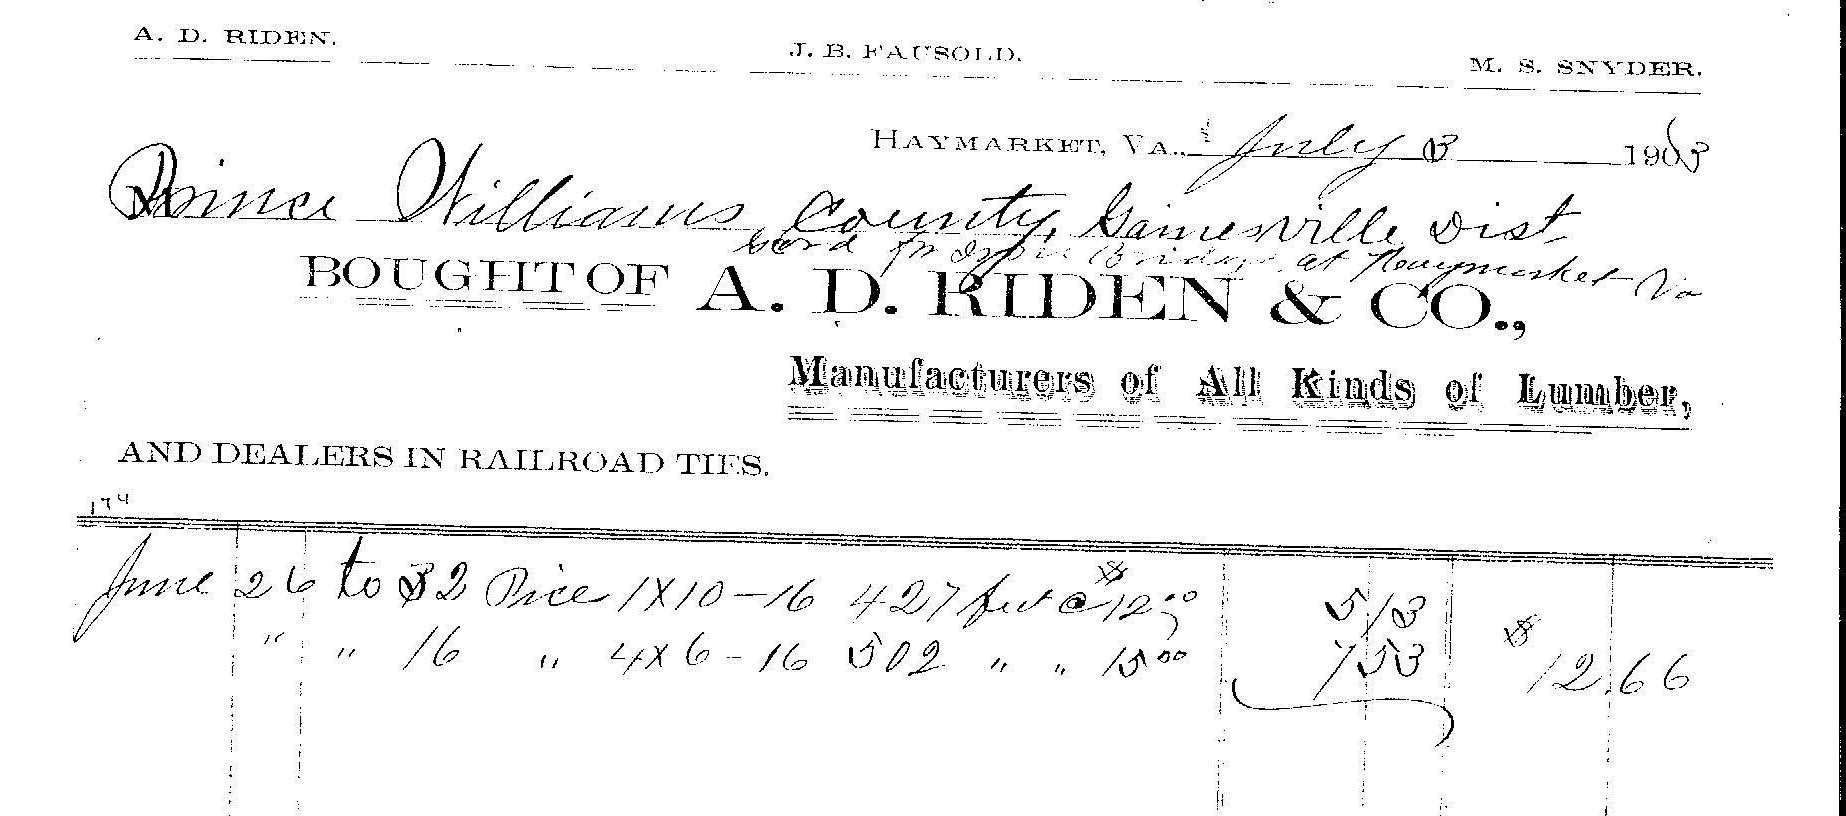 A. D. RIDEN. J. B. FAUSOLD. M. S. SNYDER.
HAYMARKET, VA., July 3 1903
Prince Williams County, Gainesville Dist
for Bridge at Haymarket Va
BOUGHT OF A. D. RIDEN & CO.,
Manufacturers of All Kinds of Lumber,
AND DEALERS IN RAILROAD TIES.
174
June 26 to 32 Pice 1X10-16 427 feet @ $12.00 5 13
" " 16 " 4x6-16 502 " " 15.00 7 53 $12.66